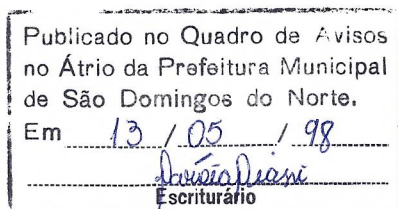 Publicado no Quadro de Avisos
no Átrio da Prefeitura Municipal
de São Domingos do Norte.
Em 13 / 05 / 98
Escriturário